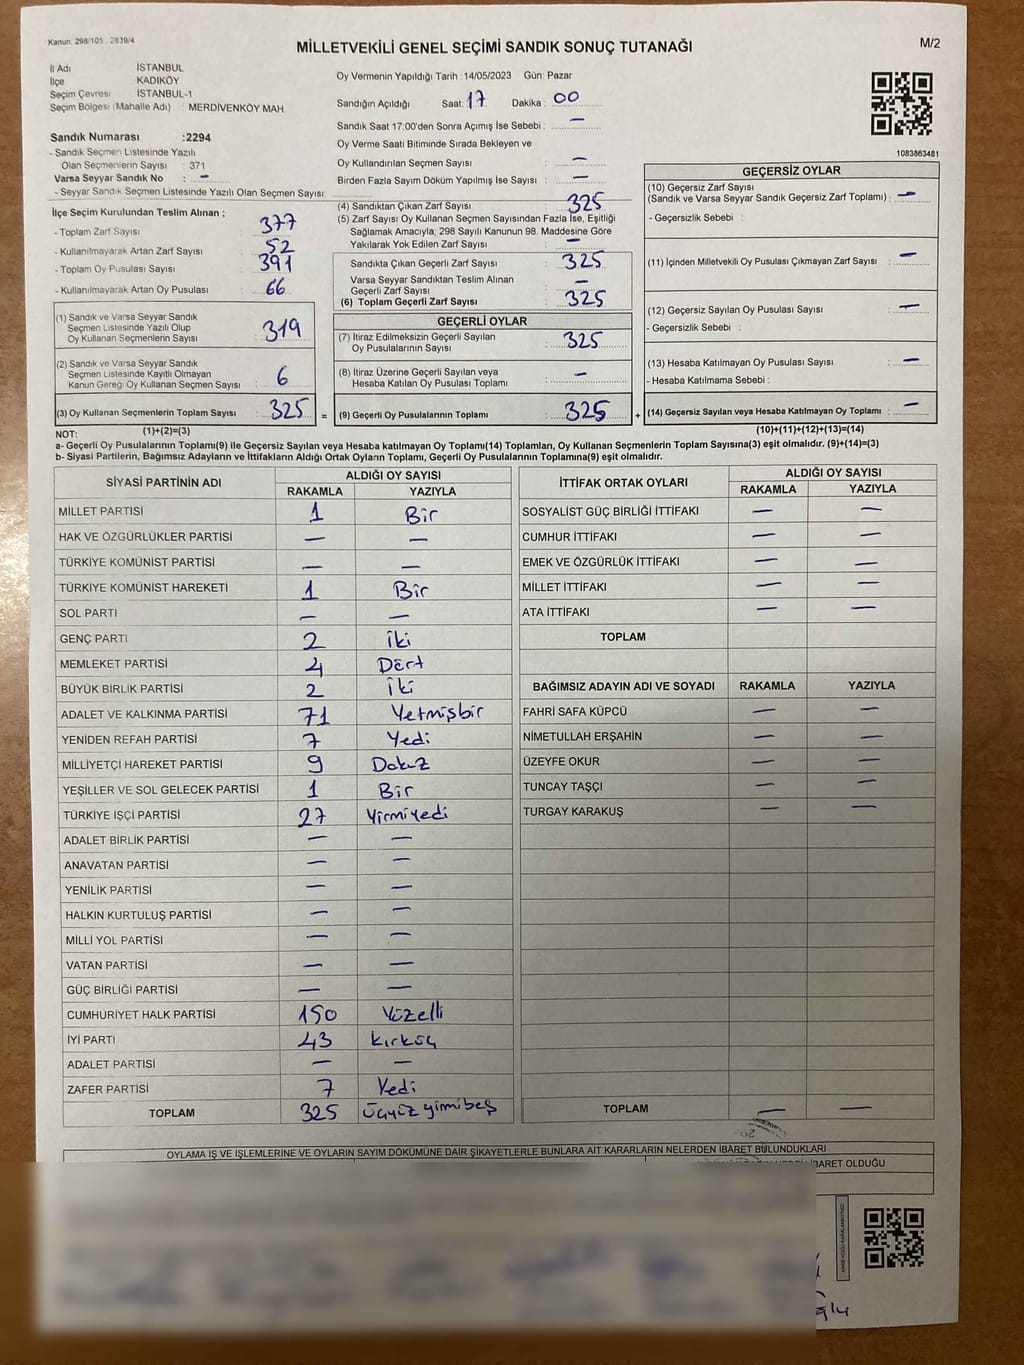 Kanun: 298/105 , 2839/4
MİLLETVEKİLİ GENEL SEÇİMİ SANDIK SONUÇ TUTANAĞI
M/2
İl Adı İSTANBUL
İlçe KADIKÖY
Seçim Çevresi İSTANBUL-1
Seçim Bölgesi (Mahalle Adı) : MERDİVENKÖY MAH.
Sandık Numarası :2294
- Sandık Seçmen Listesinde Yazılı
Olan Seçmenlerin Sayısı : 371
Varsa Seyyar Sandık No : —
- Seyyar Sandık Seçmen Listesinde Yazılı Olan Seçmen Sayısı:
Oy Vermenin Yapıldığı Tarih :14/05/2023 Gün: Pazar
Sandığın Açıldığı Saat: 17 Dakika : 00
Sandık Saat 17:00'den Sonra Açımış İse Sebebi : —
Oy Verme Saati Bitiminde Sırada Bekleyen ve
Oy Kullandırılan Seçmen Sayısı : —
Birden Fazla Sayım Döküm Yapılmış İse Sayısı : —
1083863481
İlçe Seçim Kurulundan Teslim Alınan ;
- Toplam Zarf Sayısı : 377
- Kullanılmayarak Artan Zarf Sayısı : 52
- Toplam Oy Pusulası Sayısı : 391
- Kullanılmayarak Artan Oy Pusulası : 66
(1) Sandık ve Varsa Seyyar Sandık
Seçmen Listesinde Yazılı Olup
Oy Kullanan Seçmenlerin Sayısı : 319
(2) Sandık ve Varsa Seyyar Sandık
Seçmen Listesinde Kayıtlı Olmayan
Kanun Gereği Oy Kullanan Seçmen Sayısı : 6
(3) Oy Kullanan Seçmenlerin Toplam Sayısı : 325 =
(1)+(2)=(3)
(4) Sandıktan Çıkan Zarf Sayısı : 325
(5) Zarf Sayısı Oy Kullanan Seçmen Sayısından Fazla İse, Eşitliği
Sağlamak Amacıyla; 298 Sayılı Kanunun 98. Maddesine Göre
Yakılarak Yok Edilen Zarf Sayısı : —
Sandıkta Çıkan Geçerli Zarf Sayısı : 325
Varsa Seyyar Sandıktan Teslim Alınan
Geçerli Zarf Sayısı : —
(6) Toplam Geçerli Zarf Sayısı : 325
GEÇERLİ OYLAR
(7) İtiraz Edilmeksizin Geçerli Sayılan
Oy Pusulalarının Sayısı : 325
(8) İtiraz Üzerine Geçerli Sayılan veya
Hesaba Katılan Oy Pusulası Toplamı : —
(9) Geçerli Oy Pusulalarının Toplamı : 325 +
GEÇERSİZ OYLAR
(10) Geçersiz Zarf Sayısı
(Sandık ve Varsa Seyyar Sandık Geçersiz Zarf Toplamı) : —
- Geçersizlik Sebebi :
(11) İçinden Milletvekili Oy Pusulası Çıkmayan Zarf Sayısı : —
(12) Geçersiz Sayılan Oy Pusulası Sayısı : —
- Geçersizlik Sebebi :
(13) Hesaba Katılmayan Oy Pusulası Sayısı : —
- Hesaba Katılmama Sebebi :
(14) Geçersiz Sayılan veya Hesaba Katılmayan Oy Toplamı : —
(10)+(11)+(12)+(13)=(14)
NOT:
a- Geçerli Oy Pusulalarının Toplamı(9) ile Geçersiz Sayılan veya Hesaba katılmayan Oy Toplamı(14) Toplamları, Oy Kullanan Seçmenlerin Toplam Sayısına(3) eşit olmalıdır. (9)+(14)=(3)
b- Siyasi Partilerin, Bağımsız Adayların ve İttifakların Aldığı Ortak Oyların Toplamı, Geçerli Oy Pusulalarının Toplamına(9) eşit olmalıdır.
SİYASİ PARTİNİN ADI ALDIĞI OY SAYISI
RAKAMLA YAZIYLA
MİLLET PARTİSİ 1 Bir
HAK VE ÖZGÜRLÜKLER PARTİSİ — —
TÜRKİYE KOMÜNİST PARTİSİ — —
TÜRKİYE KOMÜNİST HAREKETİ 1 Bir
SOL PARTİ — —
GENÇ PARTİ 2 İki
MEMLEKET PARTİSİ 4 Dört
BÜYÜK BİRLİK PARTİSİ 2 İki
ADALET VE KALKINMA PARTİSİ 71 Yetmişbir
YENİDEN REFAH PARTİSİ 7 Yedi
MİLLİYETÇİ HAREKET PARTİSİ 9 Dokuz
YEŞİLLER VE SOL GELECEK PARTİSİ 1 Bir
TÜRKİYE İŞÇİ PARTİSİ 27 Yirmiyedi
ADALET BİRLİK PARTİSİ — —
ANAVATAN PARTİSİ — —
YENİLİK PARTİSİ — —
HALKIN KURTULUŞ PARTİSİ — —
MİLLİ YOL PARTİSİ — —
VATAN PARTİSİ — —
GÜÇ BİRLİĞİ PARTİSİ — —
CUMHURİYET HALK PARTİSİ 150 Yüzelli
İYİ PARTİ 43 Kırküç
ADALET PARTİSİ — —
ZAFER PARTİSİ 7 Yedi
TOPLAM 325 Üçyüz yirmibeş
İTTİFAK ORTAK OYLARI ALDIĞI OY SAYISI
RAKAMLA YAZIYLA
SOSYALİST GÜÇ BİRLİĞİ İTTİFAKI — —
CUMHUR İTTİFAKI — —
EMEK VE ÖZGÜRLÜK İTTİFAKI — —
MİLLET İTTİFAKI — —
ATA İTTİFAKI — —
TOPLAM
BAĞIMSIZ ADAYIN ADI VE SOYADI RAKAMLA YAZIYLA
FAHRİ SAFA KÜPCÜ — —
NİMETULLAH ERŞAHİN — —
ÜZEYFE OKUR — —
TUNCAY TAŞÇI — —
TURGAY KARAKUŞ — —
TOPLAM — —
OYLAMA İŞ VE İŞLEMLERİNE VE OYLARIN SAYIM DÖKÜMÜNE DAİR ŞİKAYETLERLE BUNLARA AİT KARARLARIN NELERDEN İBARET BULUNDUKLARI
İBARET OLDUĞU